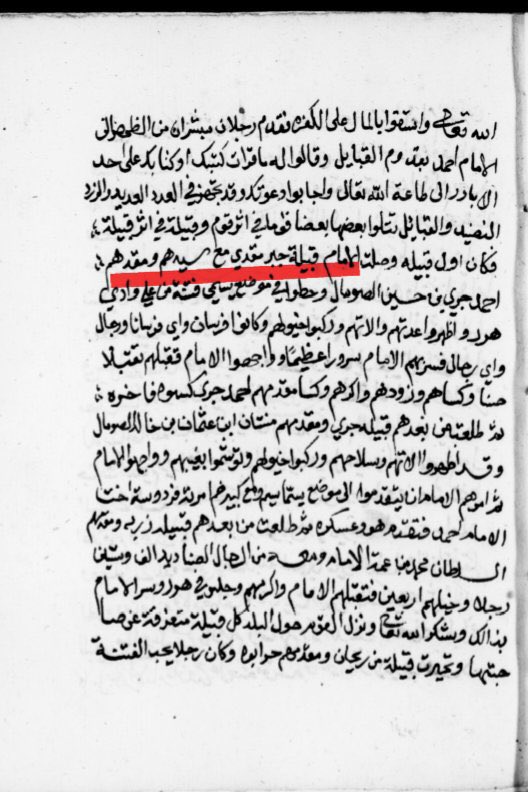 الله تعالى واستقوا بالمال على الكفره فقدم رجلان مبشران من الظهر الى
الامام احمد بقدوم القبايل وقالوا له ما قرات كتبك او كتابك على احد
الا بادر الى طاعة الله تعالى واجابوا دعوتك وقد تجهز في العدد العديد والزرد
النضيد والقبايل يتلوا بعضها بعضا قوما في اثر قوم وقبيلة في اثر قبيلة
فكان اول قبيله وصلت الامام قبيلة جبر مقدي مع سيدهم ومقدمهم
احمد جري بن حسين الصومال وحطوا في موضع يسمى على وادي
هور واظهروا عدتهم والاتهم وركبوا خيولهم وكانوا فرسان واي فرسانا ورجال
واي رجال فسر بهم الامام سرورا عظيما وواجهوا الامام فقبلهم تقبيلا
حسنا وكساهم وزودهم واكرهم وكسا مقدمهم احمد جري كسوه فاخره
ثم طلعت من بعدهم قبيله جري ومقدمهم متان ابن عثمان بن خالد الصومال
وقد اظهروا الاتهم وسلاحهم وركبوا خيولهم وواجهوا الامام
ثم امرهم الامام ان يتقدموا الى موضع يسما مع كبيرهم فردوسة اخت
الامام احمد هور عسكره ثم طلعت من بعدهم قبيله زربه ومقدمهم
السلطان محمد بن عمة الامام ومعه من الرجال الصناديد الف وستين
رجلا وخيلهم اربعين فتقبلهم الامام واكرمهم وجلس في هور وسر الامام
بذالك وشكر الله تعالى ونزل القوم حول البلد كل قبيلة متفرقة عن صا
حبتها وتحيرت قبيلة مريحان ومقدمهم حرابوه وكان رجلا يحب الفتنة